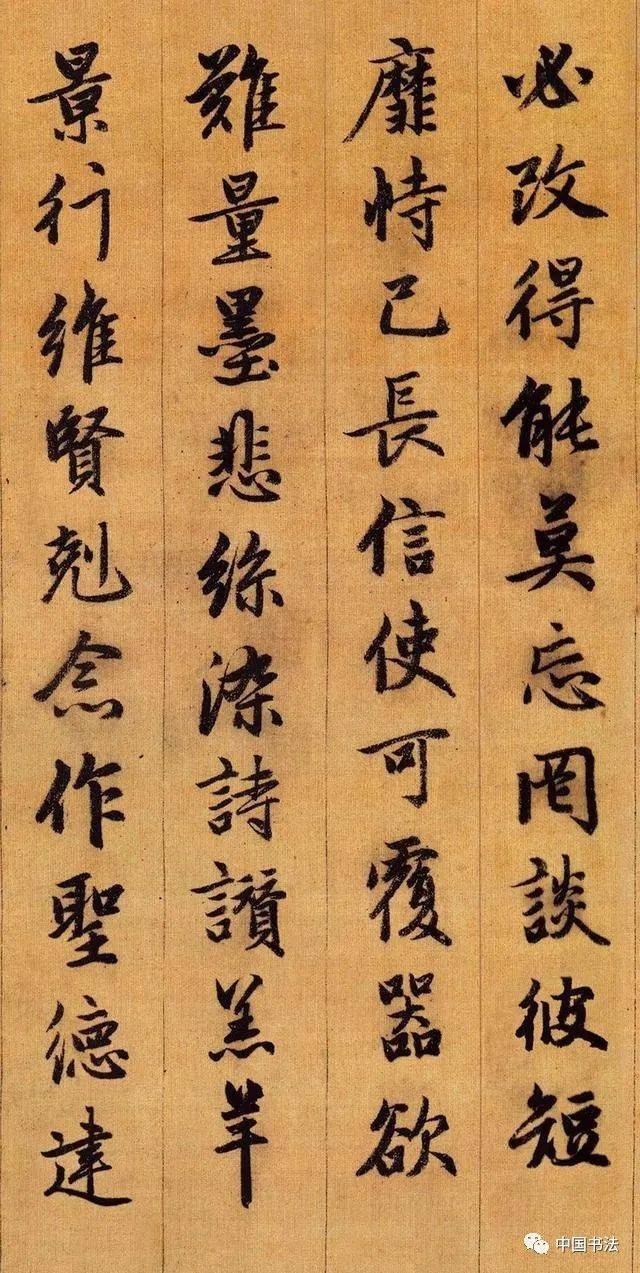 必改得能莫忘罔談彼短
靡恃己長信使可覆器欲
難量墨悲絲染詩讚羔羊
景行維賢剋念作聖德建
中国书法